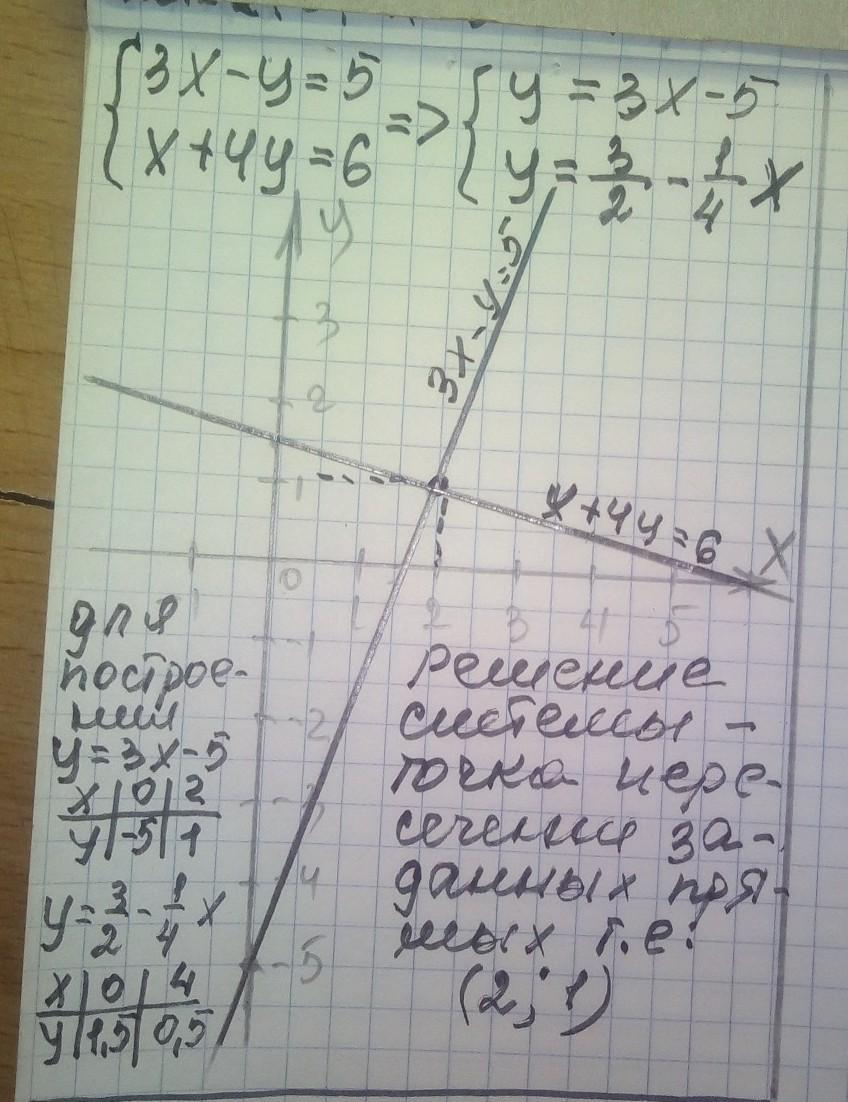 {3x-y=5 => {y=3x-5
{x+4y=6 {y=3/2-1/4x
y
3
2
1
3x-y=5
x+4y=6
x
0 1 2 3 4 5
-1
-2
-3
-4
-5
для
построе-
ния
y=3x-5
x|0|2
y|-5|1
y=3/2-1/4x
x|0|4
y|1,5|0,5
Решение
системы -
точка пере-
сечения за-
данных пря-
мых т.е.
(2; 1)